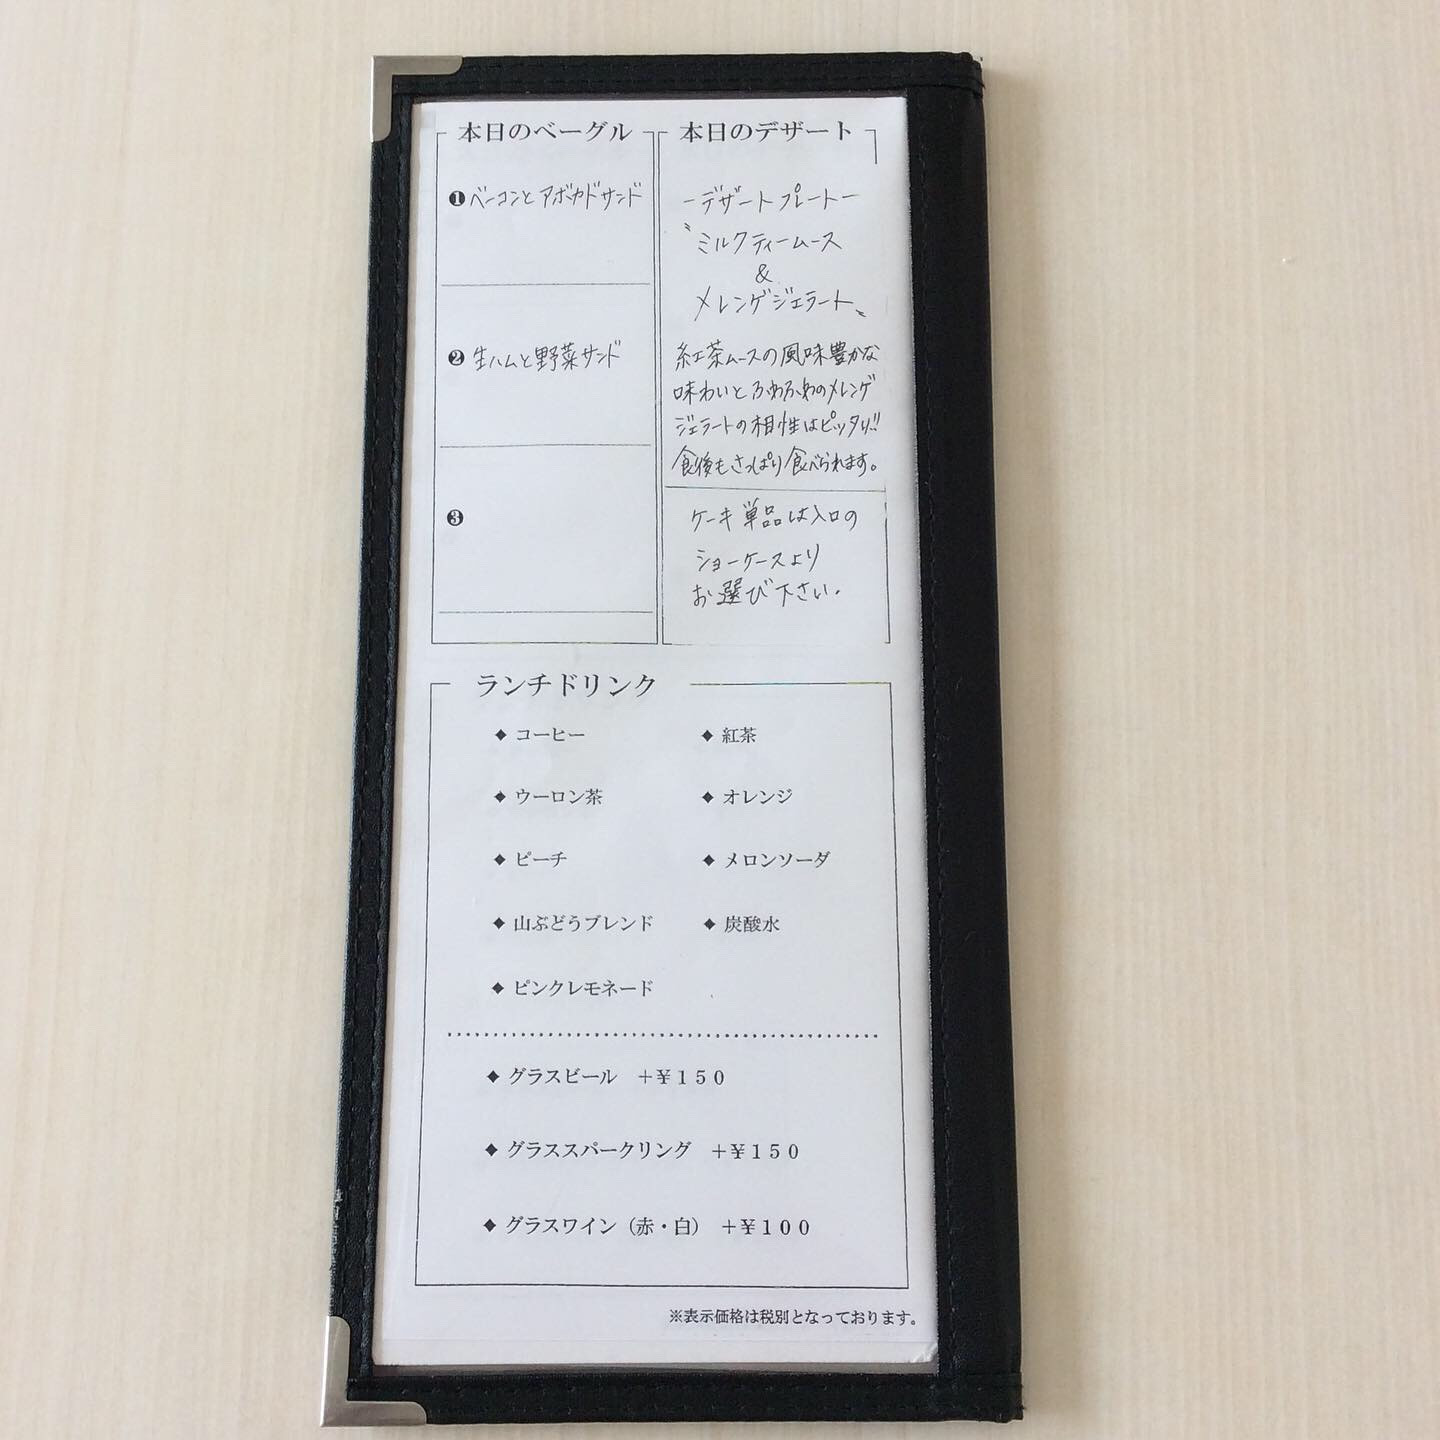 本日のベーグル
❶ベーコンとアボカドサンド
❷生ハムと野菜サンド
❸
本日のデザート
ーデザートプレートー
〝ミルクティームース
&
メレンゲジェラート〟
紅茶ムースの風味豊かな
味わいとふわふわのメレンゲ
ジェラートの相性はピッタリ!!
食後もさっぱり食べられます。
ケーキ単品は入口の
ショーケースより
お選び下さい。
ランチドリンク
◆コーヒー ◆紅茶
◆ウーロン茶 ◆オレンジ
◆ピーチ ◆メロンソーダ
◆山ぶどうブレンド ◆炭酸水
◆ピンクレモネード
◆グラスビール ＋￥１５０
◆グラススパークリング ＋￥１５０
◆グラスワイン（赤・白） ＋￥１００
※表示価格は税別となっております。